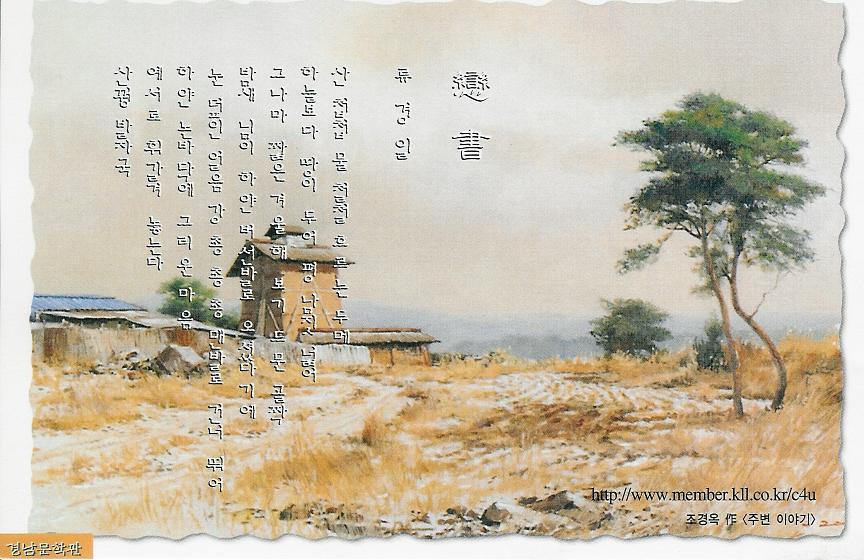 戀書
류경일
산 첩첩 물 철철 흐르는 두메
하늘보다 땅이 두어 평 남짓 넓어
그나마 짧은 겨울 해 보기 드문 골짝
밤새 님이 하얀 버선발로 오셨다기에
눈 덮인 얼음 강 종 종 종 맨발로 건너 뛰어
하얀 눈바닥에 그리운 마음
에서도 휘갈겨 놓는다
산꿩 발자국
http://www.member.kll.co.kr/c4u
조경옥 作 <주변 이야기>
경남문학관